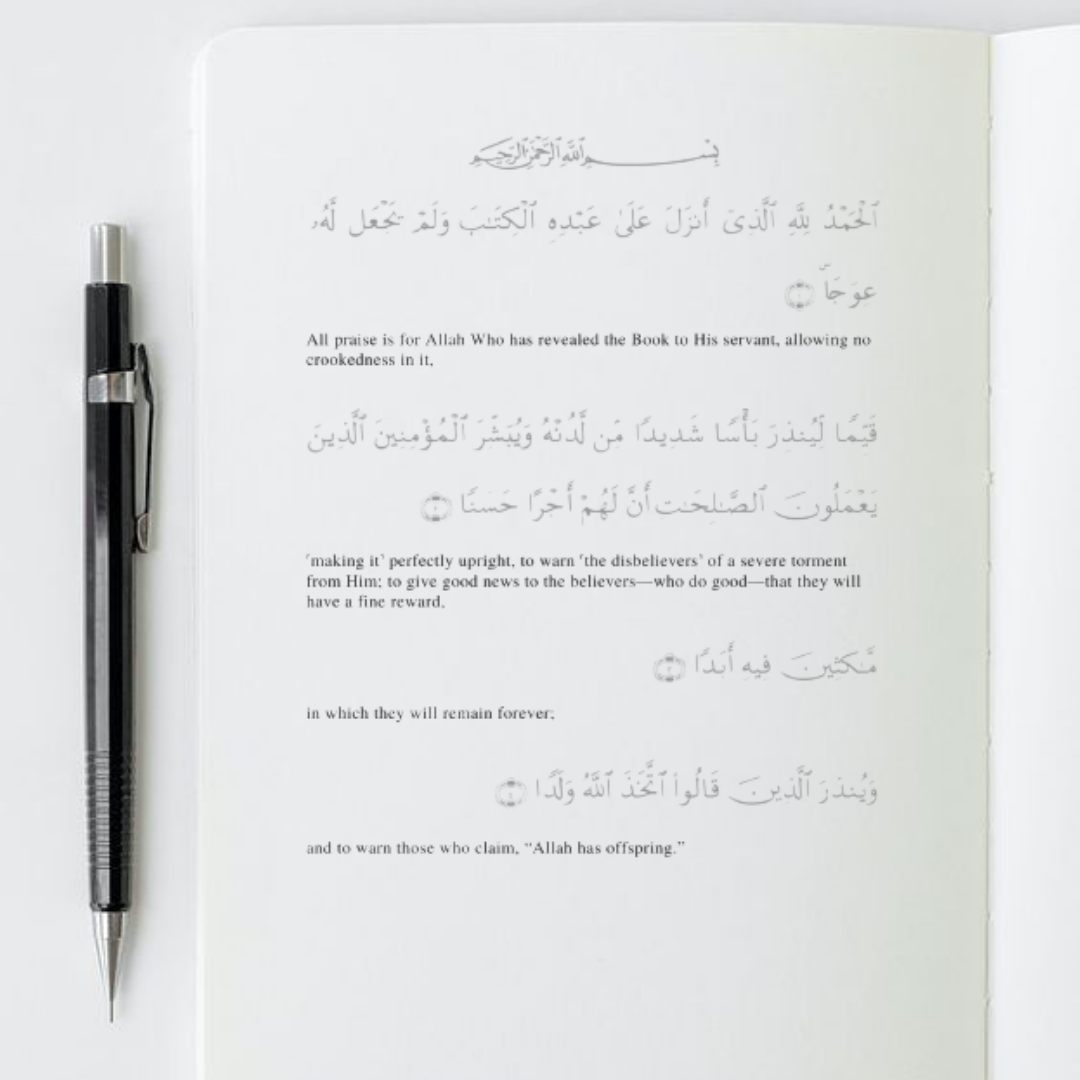 بِسْمِ ٱللَّهِ ٱلرَّحْمَٰنِ ٱلرَّحِيمِ
ٱلْحَمْدُ لِلَّهِ ٱلَّذِىٓ أَنزَلَ عَلَىٰ عَبْدِهِ ٱلْكِتَـٰبَ وَلَمْ يَجْعَل لَّهُۥ
عِوَجَاۜ ١
All praise is for Allah Who has revealed the Book to His servant, allowing no
crookedness in it,
قَيِّمًا لِّيُنذِرَ بَأْسًا شَدِيدًا مِّن لَّدُنْهُ وَيُبَشِّرَ ٱلْمُؤْمِنِينَ ٱلَّذِينَ
يَعْمَلُونَ ٱلصَّـٰلِحَـٰتِ أَنَّ لَهُمْ أَجْرًا حَسَنًا ٢
˹making it˺ perfectly upright, to warn ˹the disbelievers˺ of a severe torment
from Him; to give good news to the believers—who do good—that they will
have a fine reward,
مَّـٰكِثِينَ فِيهِ أَبَدًا ٣
in which they will remain forever;
وَيُنذِرَ ٱلَّذِينَ قَالُوا۟ ٱتَّخَذَ ٱللَّهُ وَلَدًا ٤
and to warn those who claim, “Allah has offspring.”